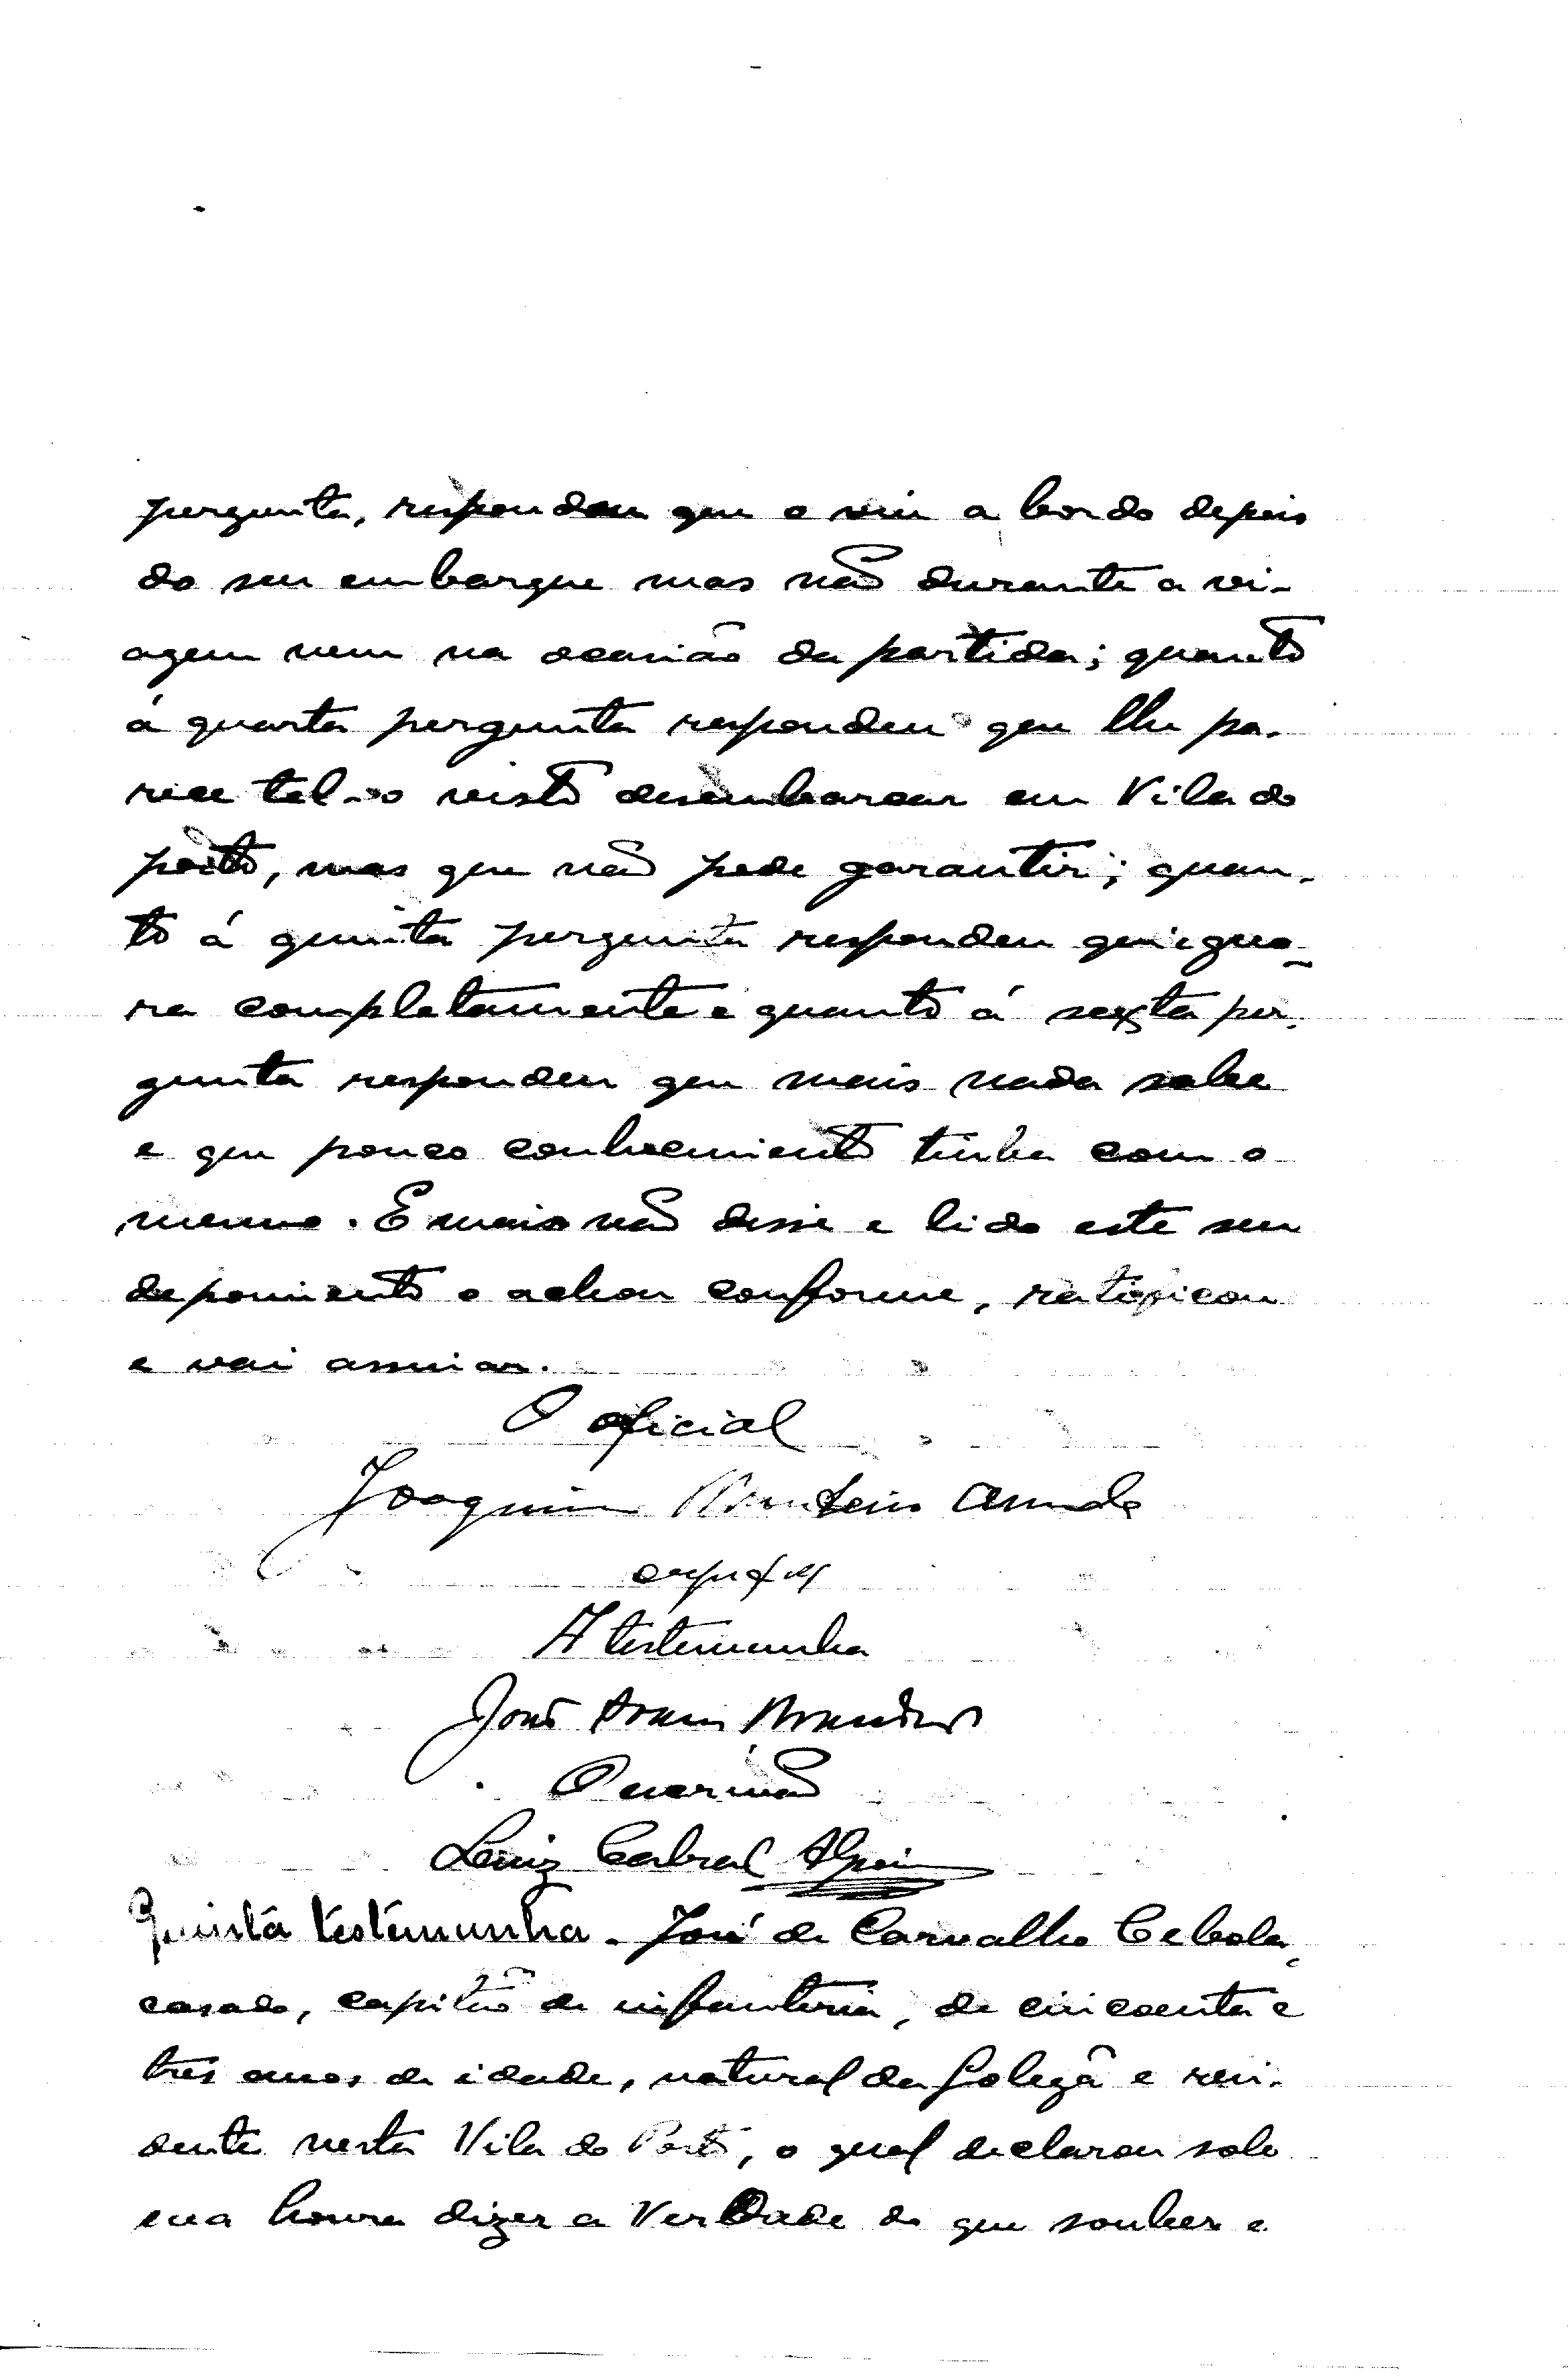 pergunta, respondeu que o viu a bordo depois
do seu embarque mas não durante a vi-
agem nem na ocasião da partida; quanto
á quarta pergunta respondeu que lhe pa-
rece tel-o visto desembarcar em Vila do
porto, mas que não pode garantir; quan-
to á quinta pergunta respondeu que igno-
ra completamente e quanto á sexta per-
gunta respondeu que mais nada sabe
e que pouco conhecimento tinha com o
mesmo. E mais não disse e lido este seu
depoimento o achou conforme, ratificou
e vai assinar.
O oficial
Joaquim Monteiro
A testemunha
José
O escrivão
Luiz Cabral
Quinta testemunha. José de Carvalho Cebola,
casado, capitão de infantaria, de cincoenta e
tres anos de idade, natural da Golegã e resi-
dente nesta Vila do Porto, o qual declarou sob
sua honra dizer a Verdade do que souber e